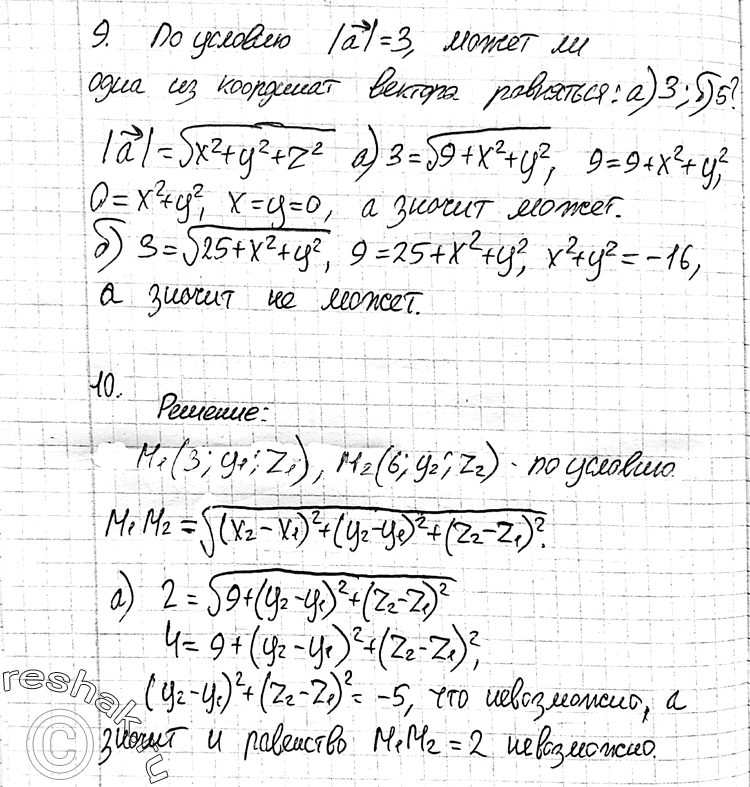 9. По условию |a⃗|=3, может ли
одна из координат вектора равняться: а) 3; б) 5?
|a⃗|=√(x²+y²+z²) а) 3=√(9+x²+y²), 9=9+x²+y²,
0=x²+y², x=y=0, а значит может.
б) 3=√(25+x²+y²), 9=25+x²+y², x²+y²=-16,
а значит не может.
10.
Решение:
M₁(3; y₁; z₁), M₂(6; y₂; z₂) - по условию.
M₁M₂=√((x₂-x₁)²+(y₂-y₁)²+(z₂-z₁)²).
а) 2=√(9+(y₂-y₁)²+(z₂-z₁)²)
4=9+(y₂-y₁)²+(z₂-z₁)²,
(y₂-y₁)²+(z₂-z₁)²=-5, что невозможно, а
значит и равенство M₁M₂=2 невозможно.
reshak.ru
©